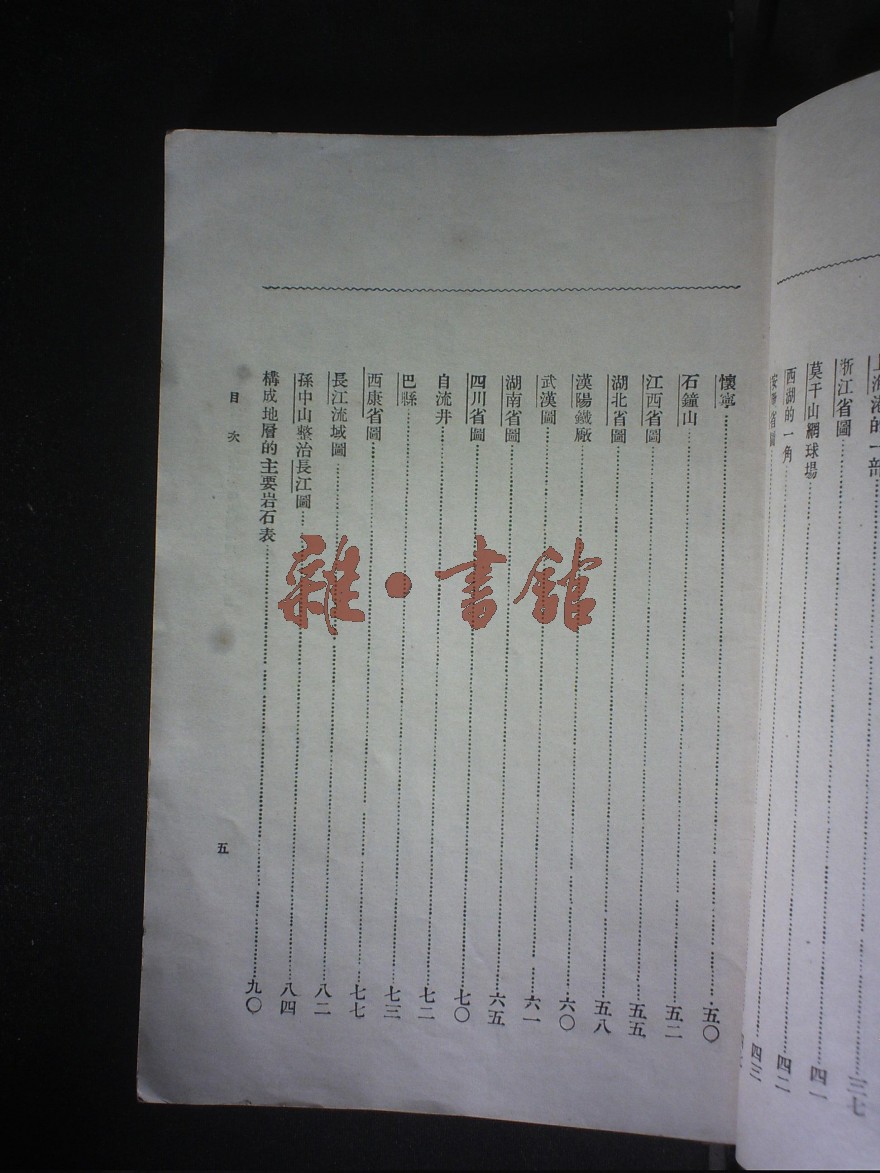 上海港的一部……三七
浙江省圖……
莫干山網球場……四一
西湖的一角……四二
省圖……四三
懷寧……五〇
石鐘山……五二
江西省圖……五五
湖北省圖……五八
漢陽鐵廠……六〇
武漢圖……六一
湖南省圖……六五
四川省圖……七〇
自流井……七二
巴縣……七三
西康省圖……七七
長江流域圖……八二
孫中山整治長江圖……八四
構成地層的主要岩石表……九〇
目次
五
雜·書館